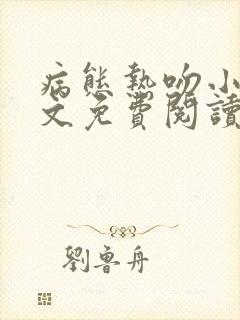 病態熱吻小
文免費閱讀
劉魯舟